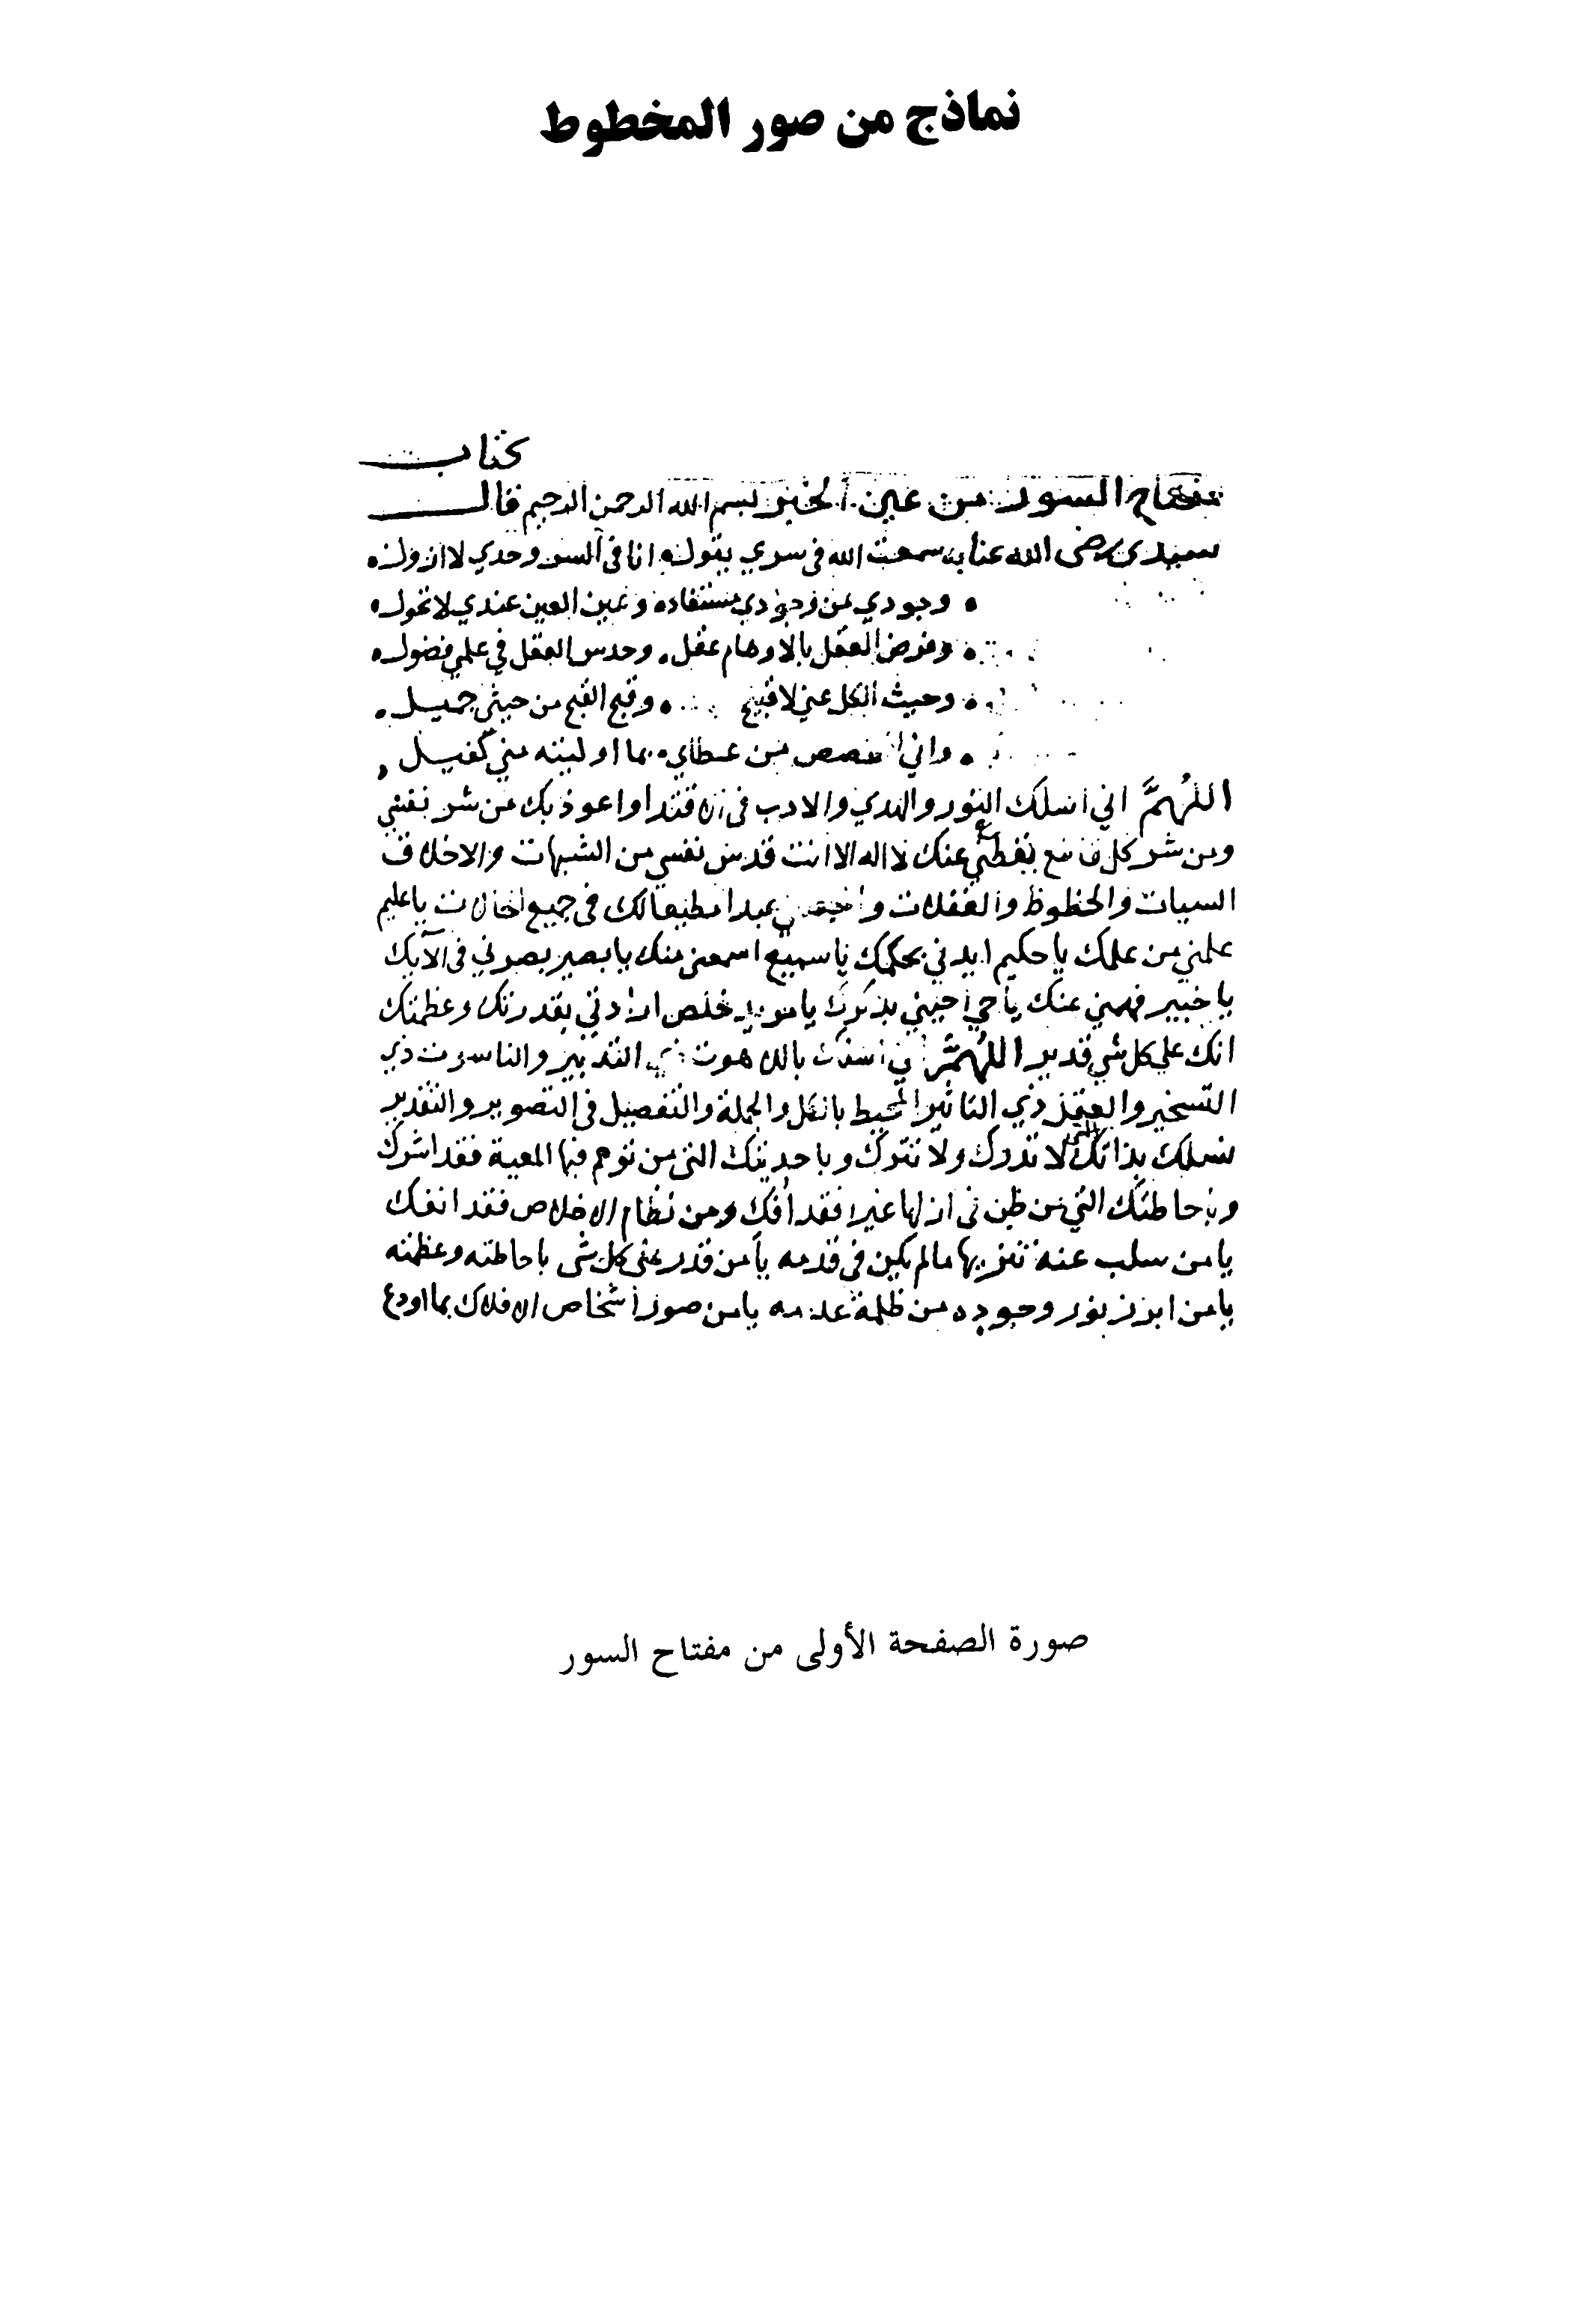 نماذج من صور المخطوط
كتاب
مفتاح السور من عين الخبر بسم الله الرحمن الرحيم قال
سيدي رضى الله عنا به سمعت الله فى سري يقول انا فى السر وحدي لا ازول
وجودي من وجودي مستفاد وعين العين عندي لا تحول
وفرض العقل بالاوهام عقل وحدس العقل في علمي فضول
وحيث الكل عني لا قبيح وقبح القبح من حيثي جميل
واني من عطاي بما اوليته مني كفيل
اللهُمَّ اني اسلك النور والهدي والادب فى الاقتدا واعوذ بك من شر نفسي
ومن شر كل قاطع يقطعني عنك لا اله الا انت قدس نفسي من الشبهات والاخلاق
السيات والحظوظ والغفلات واجعلني عبدا مطيعا لك فى جميع الحالات يا عليم
علمني من علمك يا حكيم ايدني بحكمك يا سميع اسمعني منك يا بصير بصرني فى آلآيك
يا خبير فهمني عنك يا حي احيني بذكرك يا مريد خلص ارادتي بقدرتك وعظمتك
انك علي كل شي قدير اللهُمَّ اني اسلك بالاهوت ذي التدبير والناسوت ذي
التسخير والعقل ذي التاثير المحيط بالكل والجملة والتفصيل فى التصوير والتقدير
نسلك بذاتك التى لا تدرك ولا تترك وباحديتك التى من توهم فيها المعية فقد اشرك
وباحاطتك التي من ظن فى ازلها غيرا فقد افك ومن نظام الاخلاص فقد انفك
يا من سلب عنه تنزيها مالم يكن فى قدمه يا من قدر على كل شى باحاطته وعظمته
يا من ابرز بنور وجوده من ظلمة عدمه يا من صور اشخاص الافلاك بما اودع
صورة الصفحة الأولى من مفتاح السور